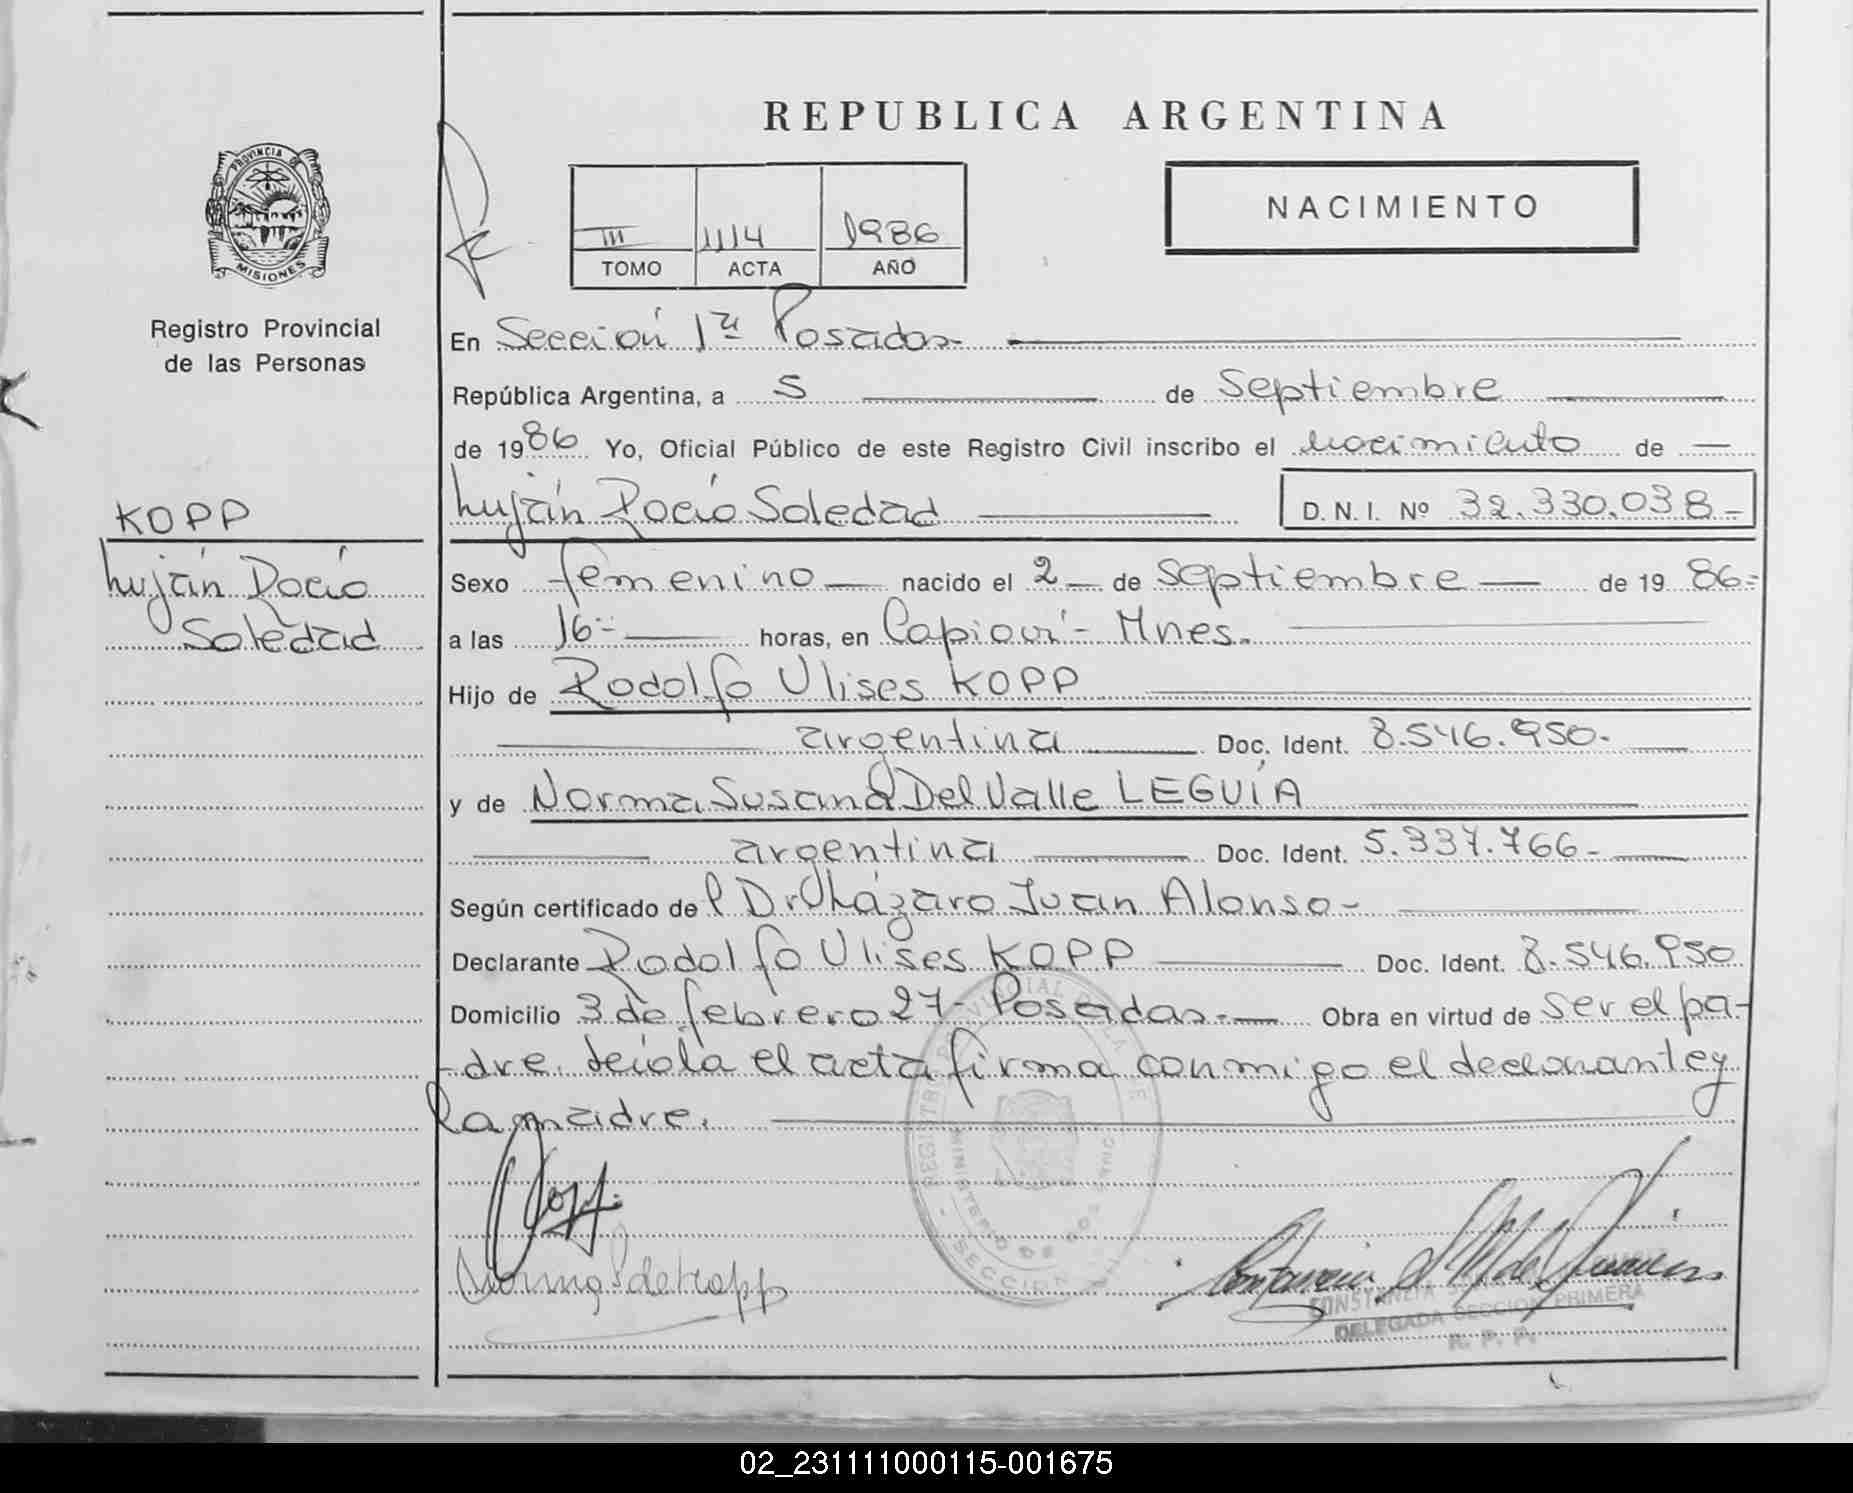 REPUBLICA ARGENTINA
PROVINCIA DE
MISIONES
Registro Provincial
de las Personas
III 1114 1986
TOMO ACTA AÑO
NACIMIENTO
En Sección 1ra Posadas
República Argentina, a 5 de Septiembre
de 1986 Yo, Oficial Público de este Registro Civil inscribo el nacimiento de
Luján Rocío Soledad D. N. I. Nº 32.330.038-
KOPP
Luján Rocío
Soledad
Sexo femenino nacido el 2 de septiembre de 19 86-
a las 16- horas, en Capioví- Mnes.
Hijo de Rodolfo Ulises KOPP
argentina Doc. Ident. 8.546.950.
y de Norma Susana Del Valle LEGUÍA
argentina Doc. Ident. 5.337.766-
Según certificado del Dr. Lázaro Juan Alonso-
Declarante Rodolfo Ulises KOPP Doc. Ident. 8.546.950
Domicilio 3 de febrero 27- Posadas.- Obra en virtud de ser el pa-
-dre. Leída el acta firma conmigo el declarante y
la madre.
Norma de Kopp
CONSTANZIA
DELEGADA SECCION PRIMERA
R. P. P.
02_231111000115-001675